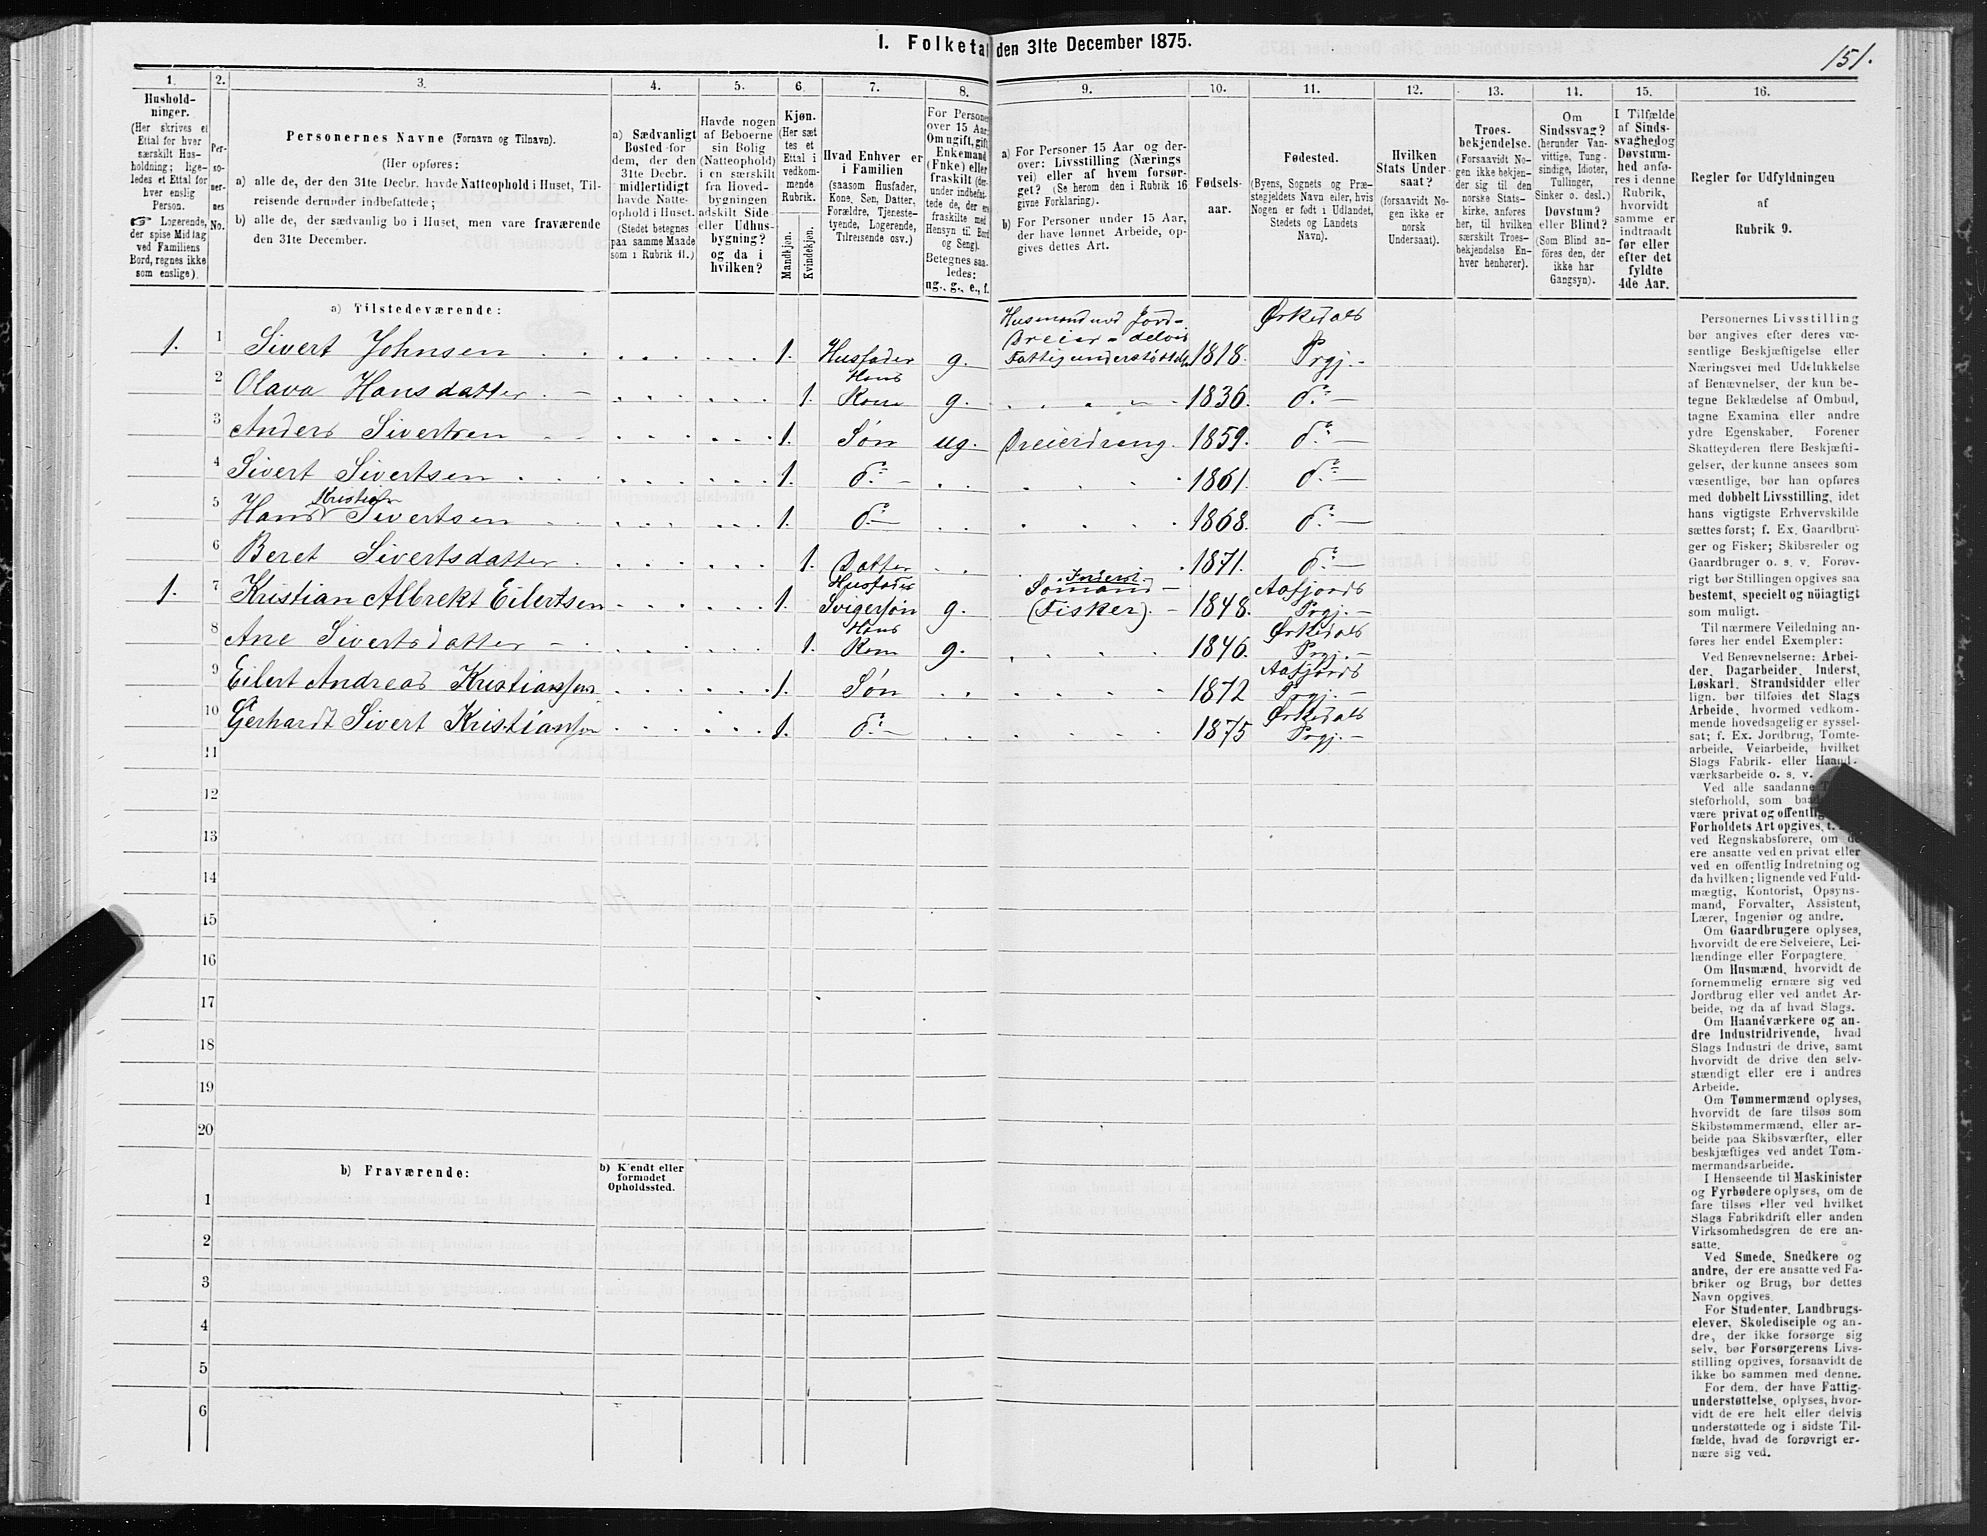 1. Folketal den 31te December 1875.
151.
1. 2. 3. 4. 5. 6. 7. 8. 9. 10. 11. 12. 13. 14. 15. 16.
Hushold-
ninger.
(Her skrives et
Ettal for hver
særskilt Hus-
holdning; lige-
ledes et Ettal for
hver enslig
Person.
☞ Logerende,
der spise Middag
ved Familiens
Bord, regnes ikke
som enslige).
Per-
so-
ner-
nes
No.
Personernes Navne (Fornavn og Tilnavn).
(Her opføres:
a) alle de, der den 31te Decbr. havde Natteophold i Huset, Til-
reisende derunder indbefattede;
b) alle de, der sædvanlig bo i Huset, men vare fraværende
den 31te December.
a) Sædvanligt
Bosted for
dem, der den
31te Decbr.
midlertidigt
havde Natte-
ophold i Huset.
(Stedet betegnes
paa samme Maade
som i Rubrik 11.)
Havde nogen
af Beboerne
sin Bolig
(Natteophold)
i en særskilt
fra Hoved-
bygningen
adskilt Side-
eller Udhus-
bygning?
og da i
hvilken?
Kjøn.
(Her sæt-
tes et
Ettal i
vedkom-
mende
Rubrik.
Mandkjøn.
Kvindekjøn.
Hvad Enhver er
i Familien
(saasom Husfader,
Kone, Søn, Datter,
Forældre, Tjeneste-
tyende, Logerende,
Tilreisende osv.)
For Personer
over 15 Aar:
Om ugift, gift,
Enkemand
(Enke) eller
fraskilt (der-
under indbefat-
tede de, der ere
fraskilte med
Hensyn til Bord
og Seng).
Betegnes saa-
ledes:
ug., g., e., f.
a) For Personer 15 Aar og der-
over: Livsstilling (Nærings
vei) eller af hvem forsør-
get? (Se herom den i Rubrik 16
givne Forklaring).
b) For Personer under 15 Aar,
der have lønnet Arbeide, op-
gives dettes Art.
Fødsels-
aar.
Fødested.
(Byens, Sognets og Præ-
stegjeldets Navn eller, hvis
Nogen er født i Udlandet,
Stedets og Landets
Navn).
Hvilken
Stats Under-
saat?
(forsaavidt No-
gen ikke er
norsk
Undersaat).
Troes-
bekjendelse.
(Forsaavidt No-
gen ikke bekjen-
der sig til den
norske Stats-
kirke, anføres
her, til hvilken
særskilt Troes-
bekjendelse En-
hver henhører).
Om
Sindssvag?
(herunder Van-
vittige, Tung-
sindige, Idioter,
Tullinger,
Sinker o. desl.)
Døvstum?
eller Blind?
(Som Blind an-
føres den, der
ikke har
Gangsyn).
I Tilfælde
af Sinds-
svaghed og
Døvstum-
hed anfø-
res i denne
Rubrik,
hvorvidt
samme er
indtraadt
før eller
efter det
fyldte
4de Aar.
Regler for Udfyldningen
af
Rubrik 9.
a) Tilstedeværende:
1. 1 Sivert Johnsen 1. Husfader g. Husmand med Jord- Dreier - delvis Fattigunderstøttelse 1818. Ørkedals Prgj.
2 Olava Hansdatter 1. Hans Kone g. 1836. do
3 Anders Sivertsen 1. Søn ug. Dreierdreng. 1859. do
4 Sivert Sivertsen 1. do 1861. do
5 Hans Kristian Sivertsen 1. do 1868. do
6 Beret Sivertsdatter 1. Datter 1871. do
1. 7 Kristian Albrekt Eilertsen 1. Husfader Svigersøn g. Inderst Sømand (Fisker). 1848. Aafjords Prgj.
8 Ane Sivertsdatter 1. Hans Kone g. 1846. Ørkedals Prgj.
9 Eilert Andreas Kristiansen 1. Søn 1872 Aafjords Prgj.
10 Gerhardt Sivert Kristiansen 1. do 1875 Ørkedals Prgj.
11
12
13
14
15
16
17
18
19
20
b) Fraværende:
b) Kjendt eller
formodet
Opholdssted.
1
2
3
4
5
6
Personernes Livsstilling
bør angives efter deres væ-
sentlige Beskjæftigelse eller
Næringsvei med Udelukkelse
af Benævnelser, der kun be-
tegne Beklædelse af Ombud,
tagne Examina eller andre
ydre Egenskaber. Forener
Skatteyderen flere Beskjæfti-
gelser, der kunne ansees som
væsentlige, bør han opføres
med dobbelt Livsstilling, idet
hans vigtigste Erhvervskilde
sættes først; f. Ex. Gaardbru-
ger og Fisker; Skibsreder og
Gaardbruger o. s. v. Forøv-
rigt bør Stillingen opgives saa
bestemt, specielt og nöiagtigt
som muligt.
Til nærmere Veiledning an-
føres her endel Exempler:
Ved Benævnelserne: Arbei-
der, Dagarbeider, Inderst,
Løskarl, Strandsidder eller
lign. bør tilføies det Slags
Arbeide, hvormed vedkom-
mende hovedsagelig er syssel-
sat; f. Ex. Jordbrug, Tomte-
arbeide, Veiarbeide, hvilket
Slags Fabrik- eller Haand-
værksarbeide o. s. v.
Ved alle saadanne
steforhold, som
være privat og offentlig
Forholdets Art opgives,
ved Regnskabsførere, om de
ere ansatte ved en privat eller
ved en offentlig Indretning og
da hvilken; lignende ved Fuld-
mægtig, Kontorist, Opsyns-
mand, Forvalter, Assistent,
Lærer, Ingeniør og andre.
Om Gaardbrugere oplyses,
hvorvidt de ere Selveiere, Lei-
lændinge eller Forpagtere.
Om Husmænd, hvorvidt de
fornemmelig ernære sig ved
Jordbrug eller ved andet Ar-
beide, og da af hvad Slags.
Om Haandværkere og an-
dre Industridrivende, hvad
Slags Industri de drive, samt
hvorvidt de drive den selv-
stændigt eller ere i andres
Arbeide.
Om Tømmermænd oplyses,
hvorvidt de fare tilsøs som
Skibstømmermænd, eller ar-
beide paa Skibsværfter, eller
beskjæftiges ved andet Tøm-
mermandsarbeide.
I Henseende til Maskinister
og Fyrbødere oplyses, om de
fare tilsøs eller ved hvilket
Slags Fabrikdrift eller anden
Virksomhedsgren de ere an-
satte.
Ved Smede, Snedkere og
andre, der ere ansatte ved Fa-
briker og Brug, bør dettes
Navn opgives.
For Studenter, Landbrugs-
elever, Skoledisciple og an-
dre, der ikke forsørge sig
selv, bør Forsørgerens Livs-
stilling opgives, forsaavidt de
ikke bo sammen med denne.
For dem, der have Fattig-
understøttelse, oplyses, hvor-
vidt de ere helt eller delvis
understøttede og i sidste Til-
fælde, hvad de forøvrigt er-
nære sig ved.